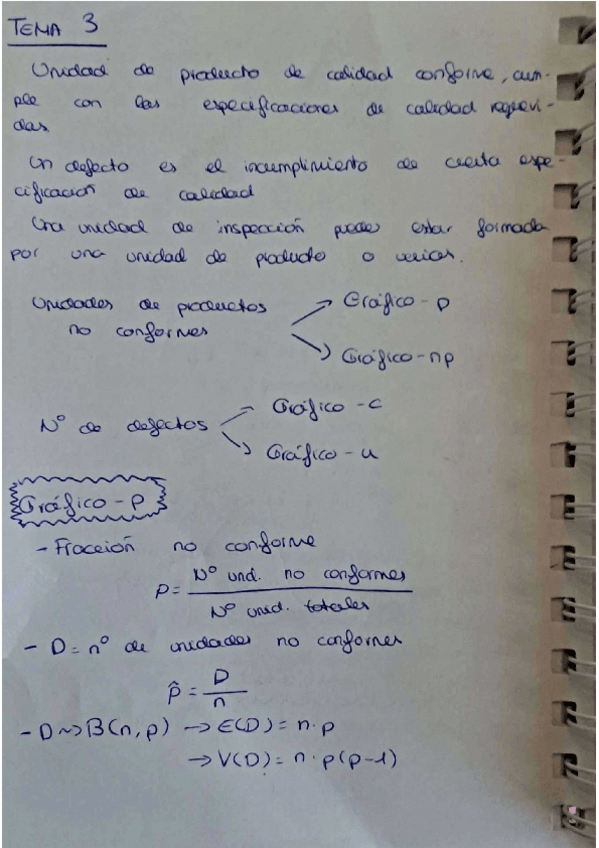 TEMA 3
Unidad de producto de calidad conforme, cum-
ple con las especificaciones de calidad requeri-
das
Un defecto es el incumplimiento de cierta espe-
cificación de calidad
Una unidad de inspección puede estar formada
por una unidad de producto o varias.
Unidades de productos no conformes → Gráfico - p
→ Gráfico - np
Nº de defectos → Gráfico - c
→ Gráfico - u
Gráfico - P
- Fracción no conforme
P = Nº und. no conformes / Nº unid. totales
- D = nº de unidades no conformes
p̂ = D / n
- D ~> B(n, p) → E(D) = n · p
→ V(D) = n · p(p-1)